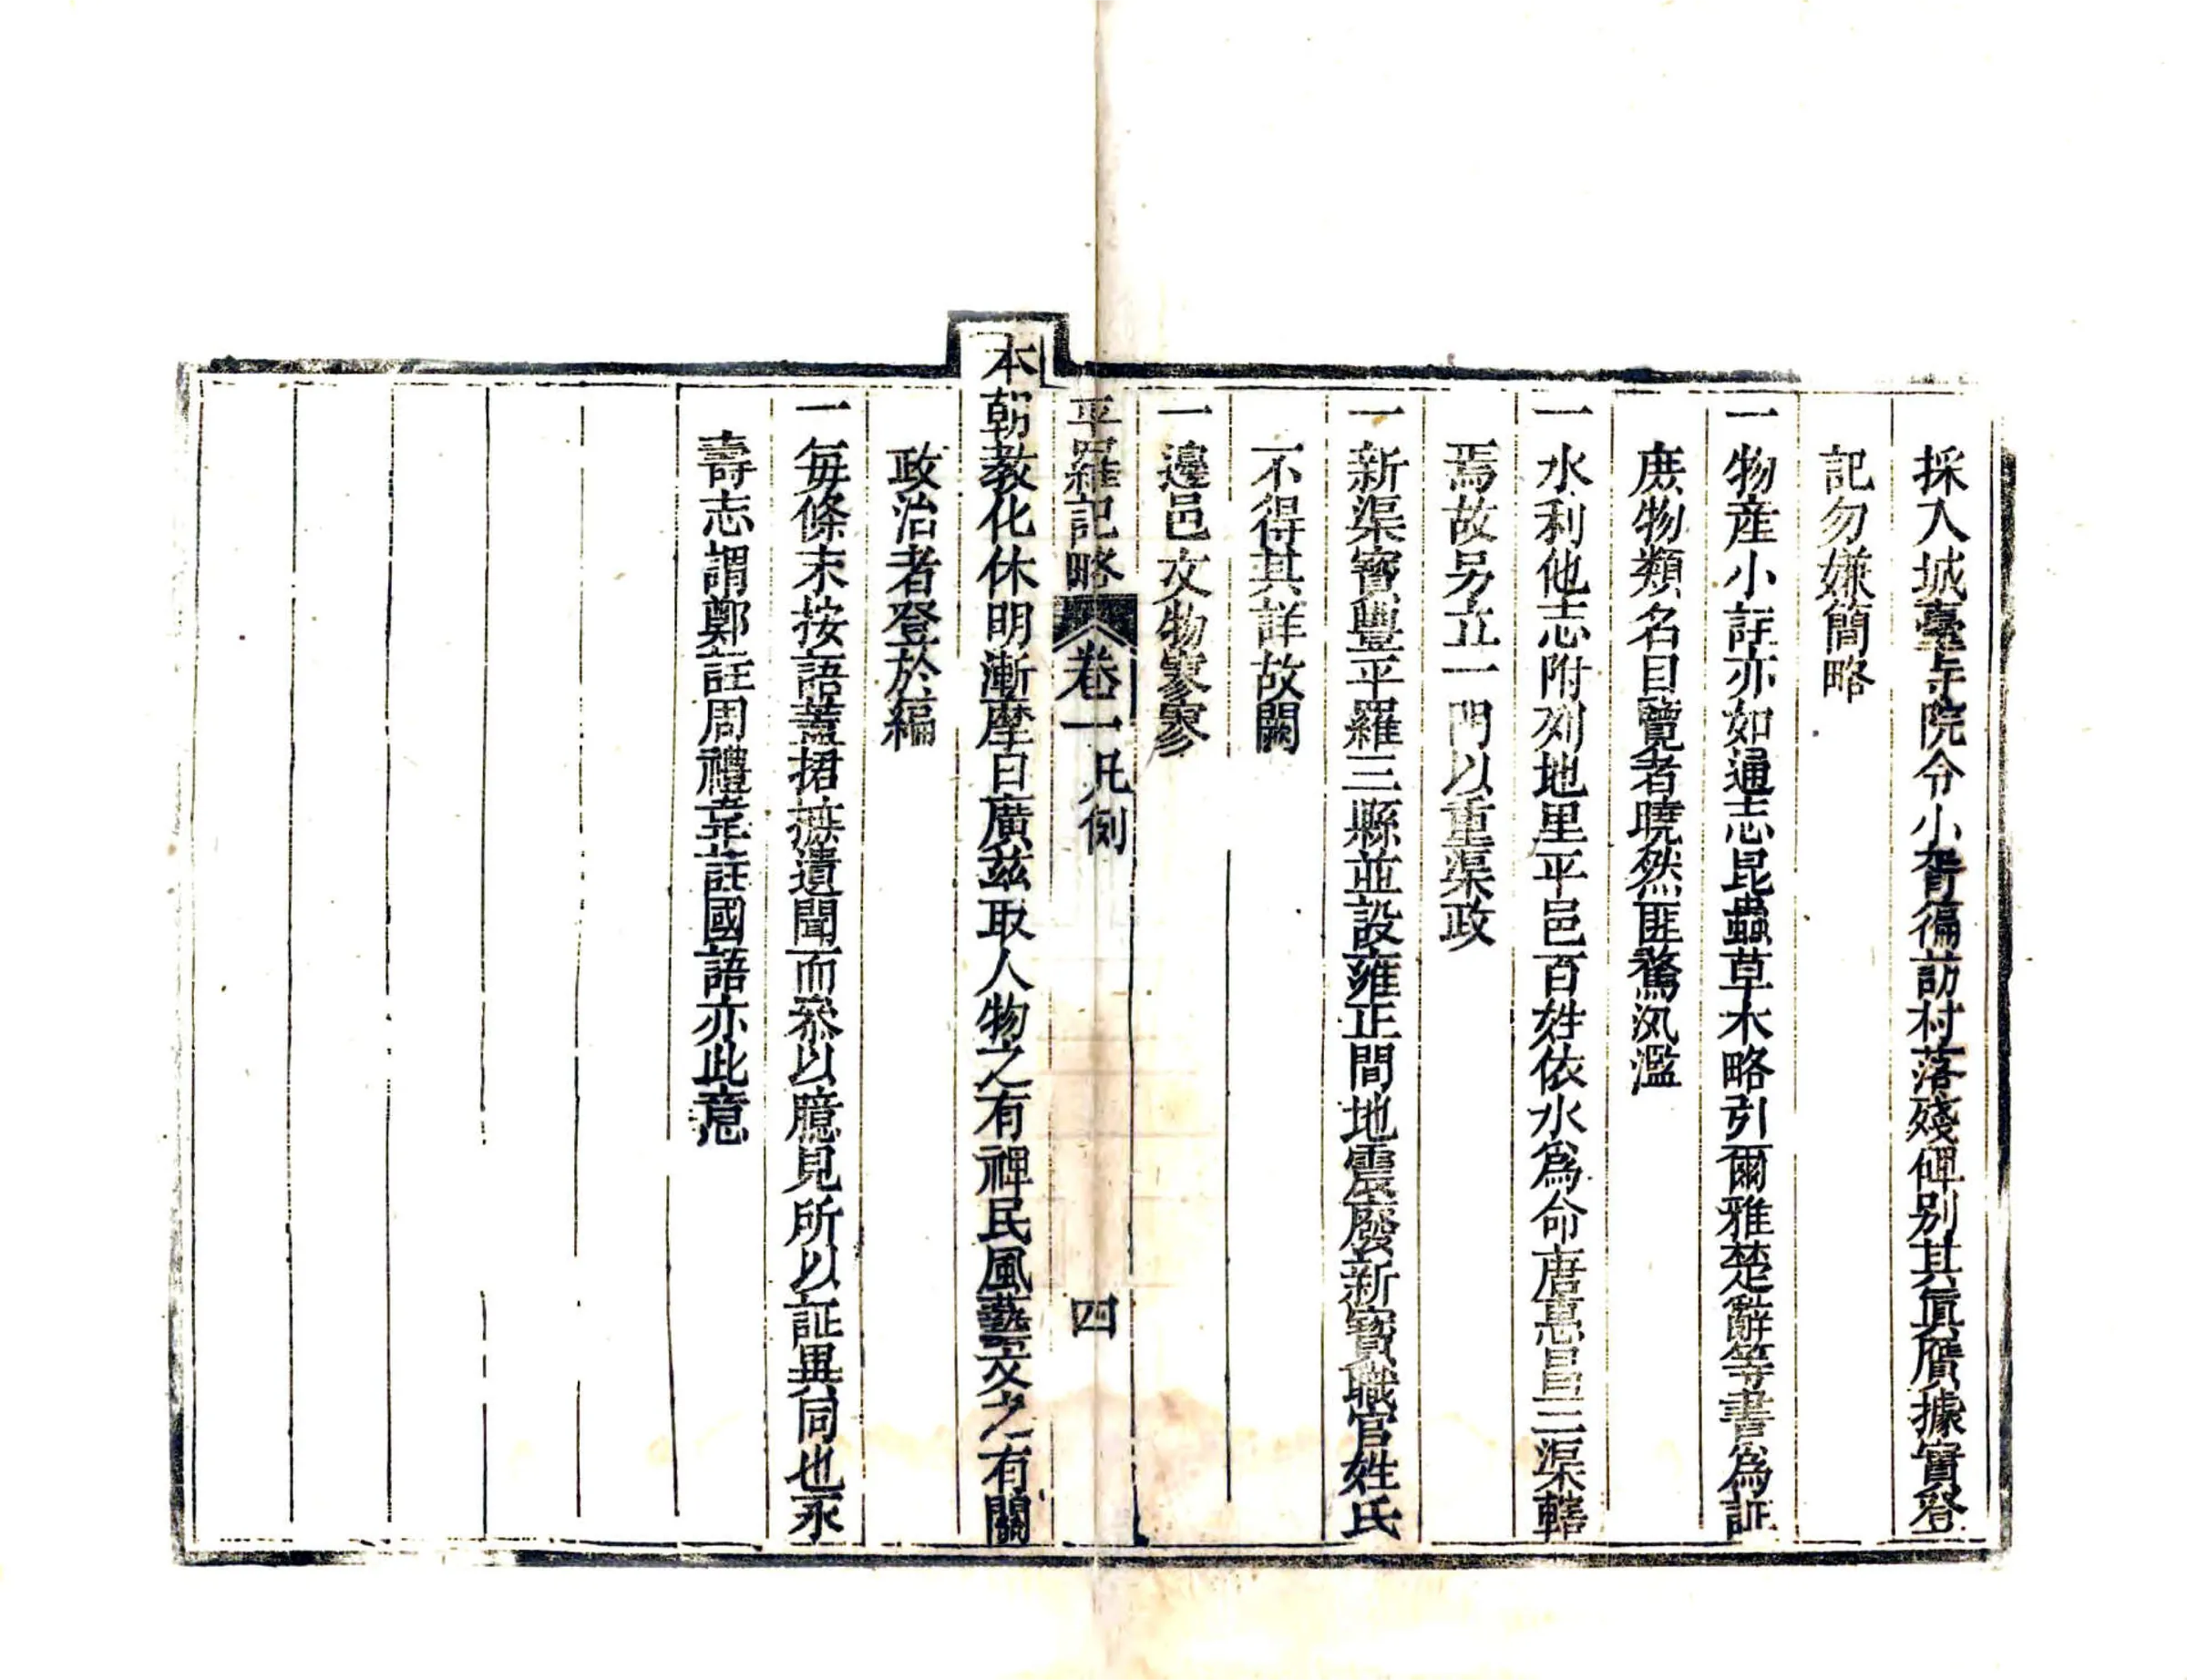 採入城臺寺院令小胥徧訪村落殘碑別其眞贋據實登
記勿嫌簡略
一物産小註亦如通志昆蟲草木略引爾雅楚辭等書爲証
庶物類名目覽者曉然匪騖汎濫
一水利他志附列地里平邑百姓依水爲命唐惠昌三渠轄
焉故另立一門以重渠政
一新渠寶豐平羅三縣並設雍正間地震廢新寶職官姓氏
不得其詳故闕
一邊邑文物寥寥
平羅記略 卷一凡例 四
本朝教化休明漸摩日廣茲取人物之有裨民風藝文之有關
政治者登於編
一每條末按語蓋捃摭遺聞而叅以臆見所以証異同也永
壽志謂鄭註周禮韋註國語亦此意